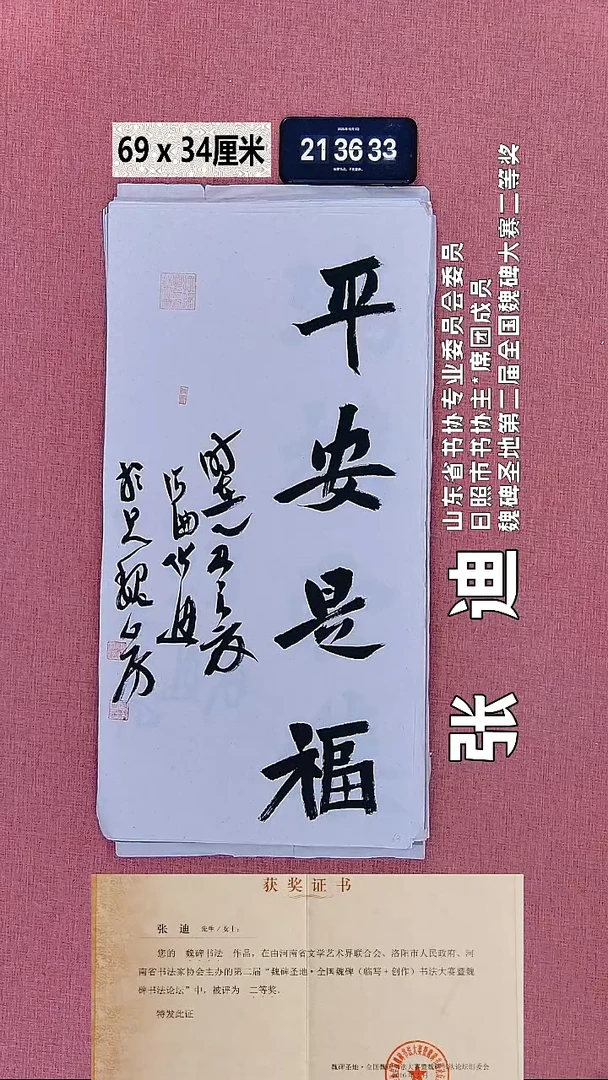 69 x 34厘米
21 36 33
平安是福
山东省书协专业委员会委员
日照市书协主*席团成员
魏碑圣地第二届全国魏碑大赛二等奖
张 迪
获奖证书
张 迪 先生/女士:
您的 魏碑书法 作品，在由河南省文学艺术界联合会、洛阳市人民政府、河
南省书法家协会主办的第二届“魏碑圣地·全国魏碑（临写+创作）书法大赛暨魏
碑书法论坛”中，被评为 二等奖.
特发此证